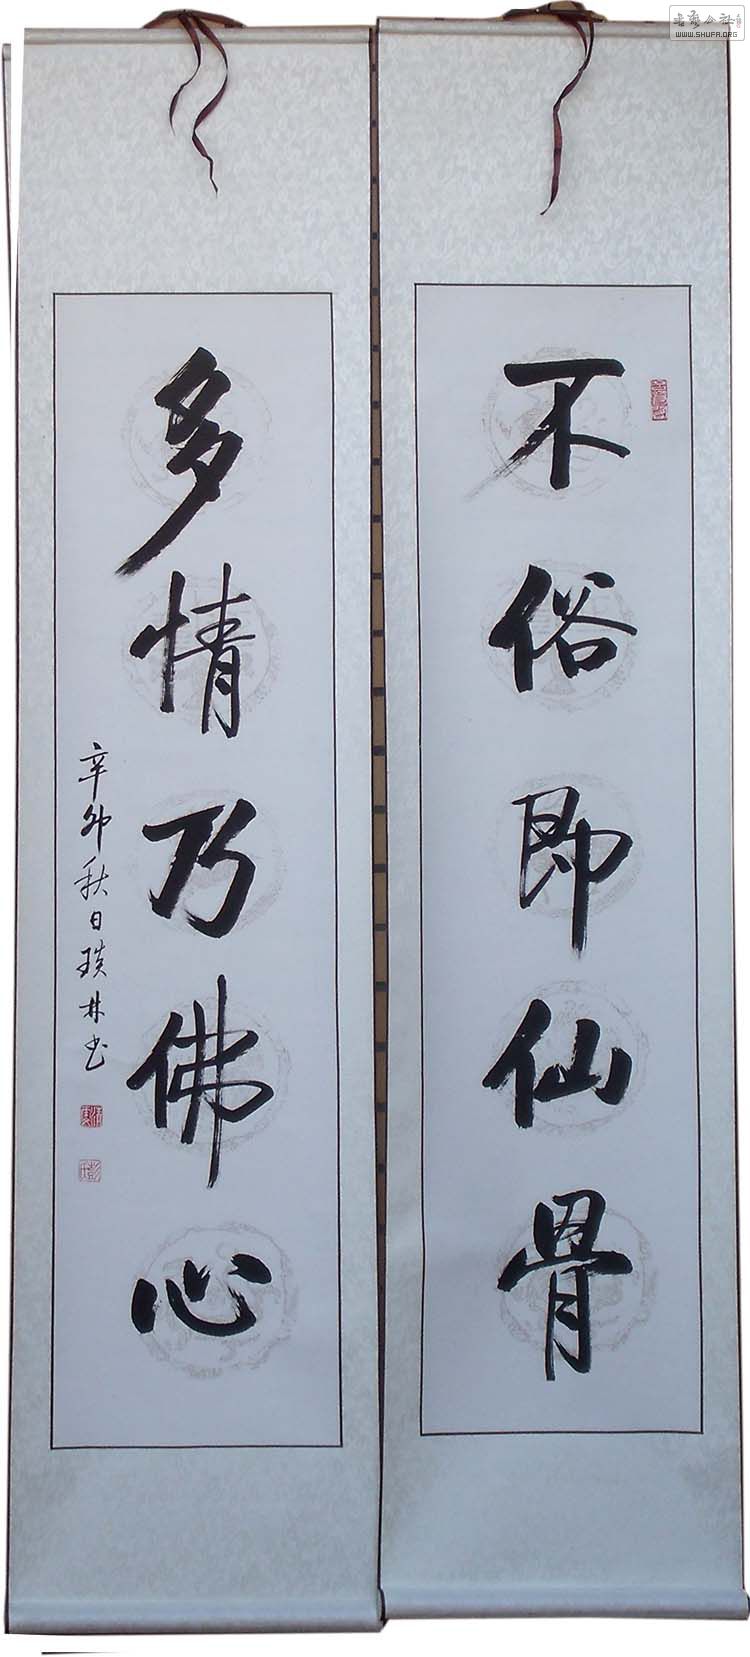 不俗即仙骨
多情乃佛心
辛卯秋日瑛林书
书艺公社
WWW.SHUFA.ORG